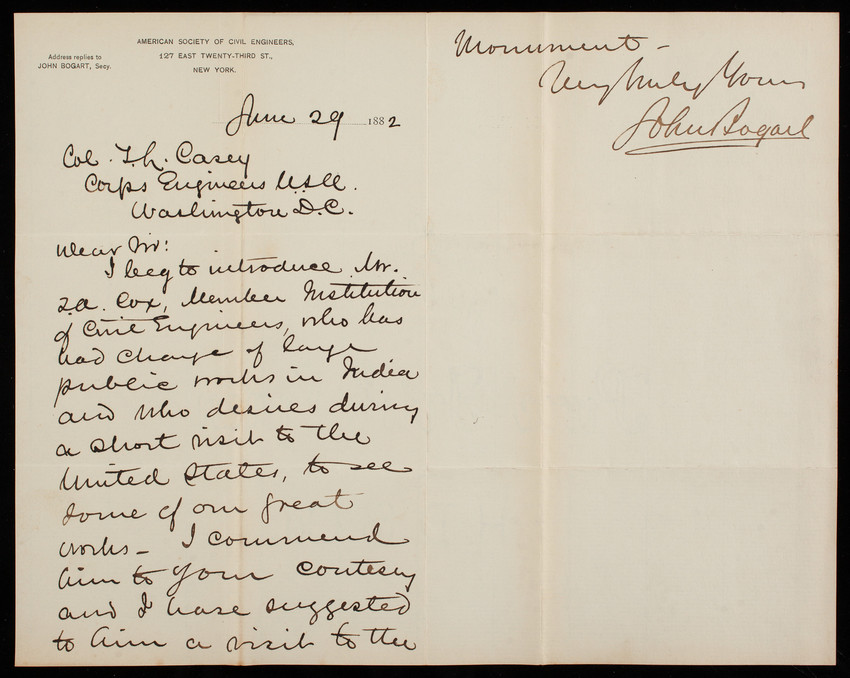 AMERICAN SOCIETY OF CIVIL ENGINEERS,
127 EAST TWENTY-THIRD ST.,
NEW YORK.
Address replies to
JOHN BOGART, Secy.
June 29 1882
Col. T. L. Casey
Corps Engineers U.S.A.
Washington D.C.
Dear Sir:
I beg to introduce Mr.
Cox, Member Institution
of Civil Engineers, who has
had charge of large
public works in India
and who desires during
a short visit to the
United States, to see
some of our great
works – I commend
him to your courtesy
and I have suggested
to him a visit to the
Monument –
Very truly Yours
John Bogart